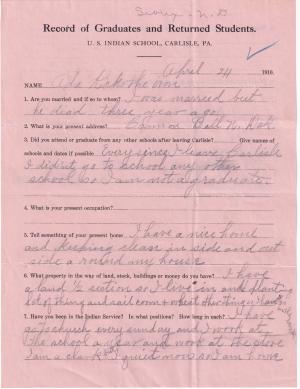 Sioux - N. D
Record of Graduates and Returned Students.
U. S. INDIAN SCHOOL, CARLISLE, PA.
April 24 1910.
NAME Ada
1. Are you married and if so to whom? I was married but
he dead three year ago.
2. What is your present address? Cannon Ball N. Dak
3. Did you attend or graduate from any other schools after leaving Carlisle? Give names of
schools and dates if possible Every since I leave Carlisle
I didn't go to school any other
school so I am not a graduate.
4. What is your present occupation?
5. Tell something of your present home I have a nice home
and keeping clean in side and out
side a round my house
6. What property in the way of land, stock, buildings or money do you have? I have
a land 1/2 section so I live in and planting
lot of thing and sait corn & wheat other things I plant
7. Have you been in the Indian Service? In what positions? How long in each? I have
go to church every sunday and I work at
the school a year and work at the store
I am a clerk I quied now so I am home